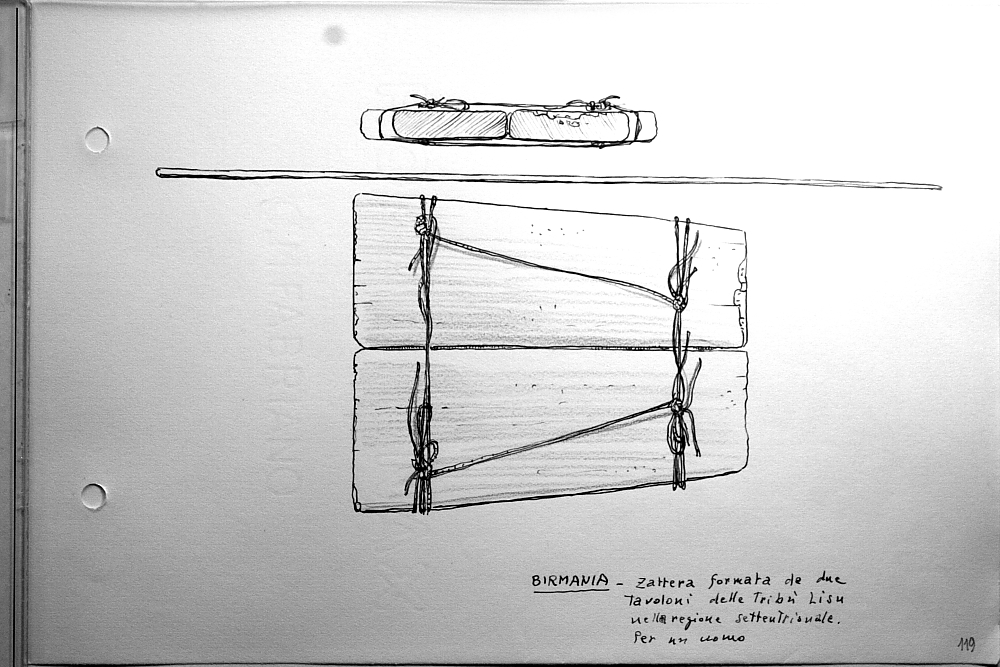 BIRMANIA - Zattera formata da due
Tavoloni delle Tribù Lisu
nella regione settentrionale.
Per un uomo
119